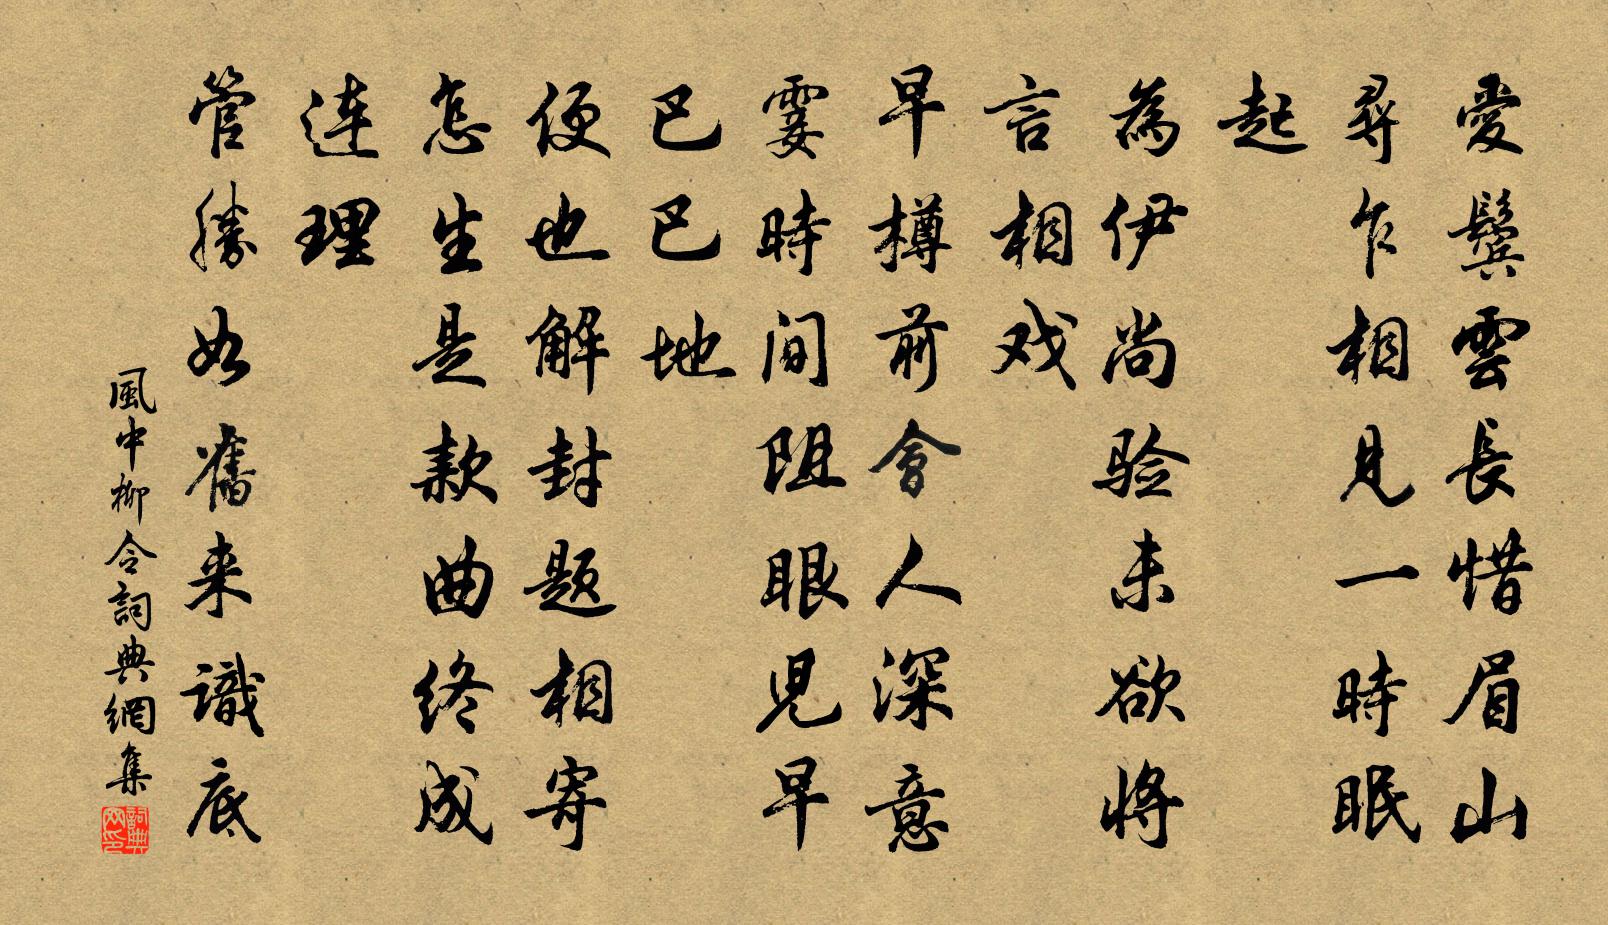 愛鬓雲長惜眉山
尋乍相見一時眠
起
為伊尚验未欲將
言相戏
早樽前會人深意
霎時间阻眼児早
巴巴地
便也解封题相寄
怎生是款曲终成
连理
管勝如舊来識底
風中柳令詞典網集
詞典网印